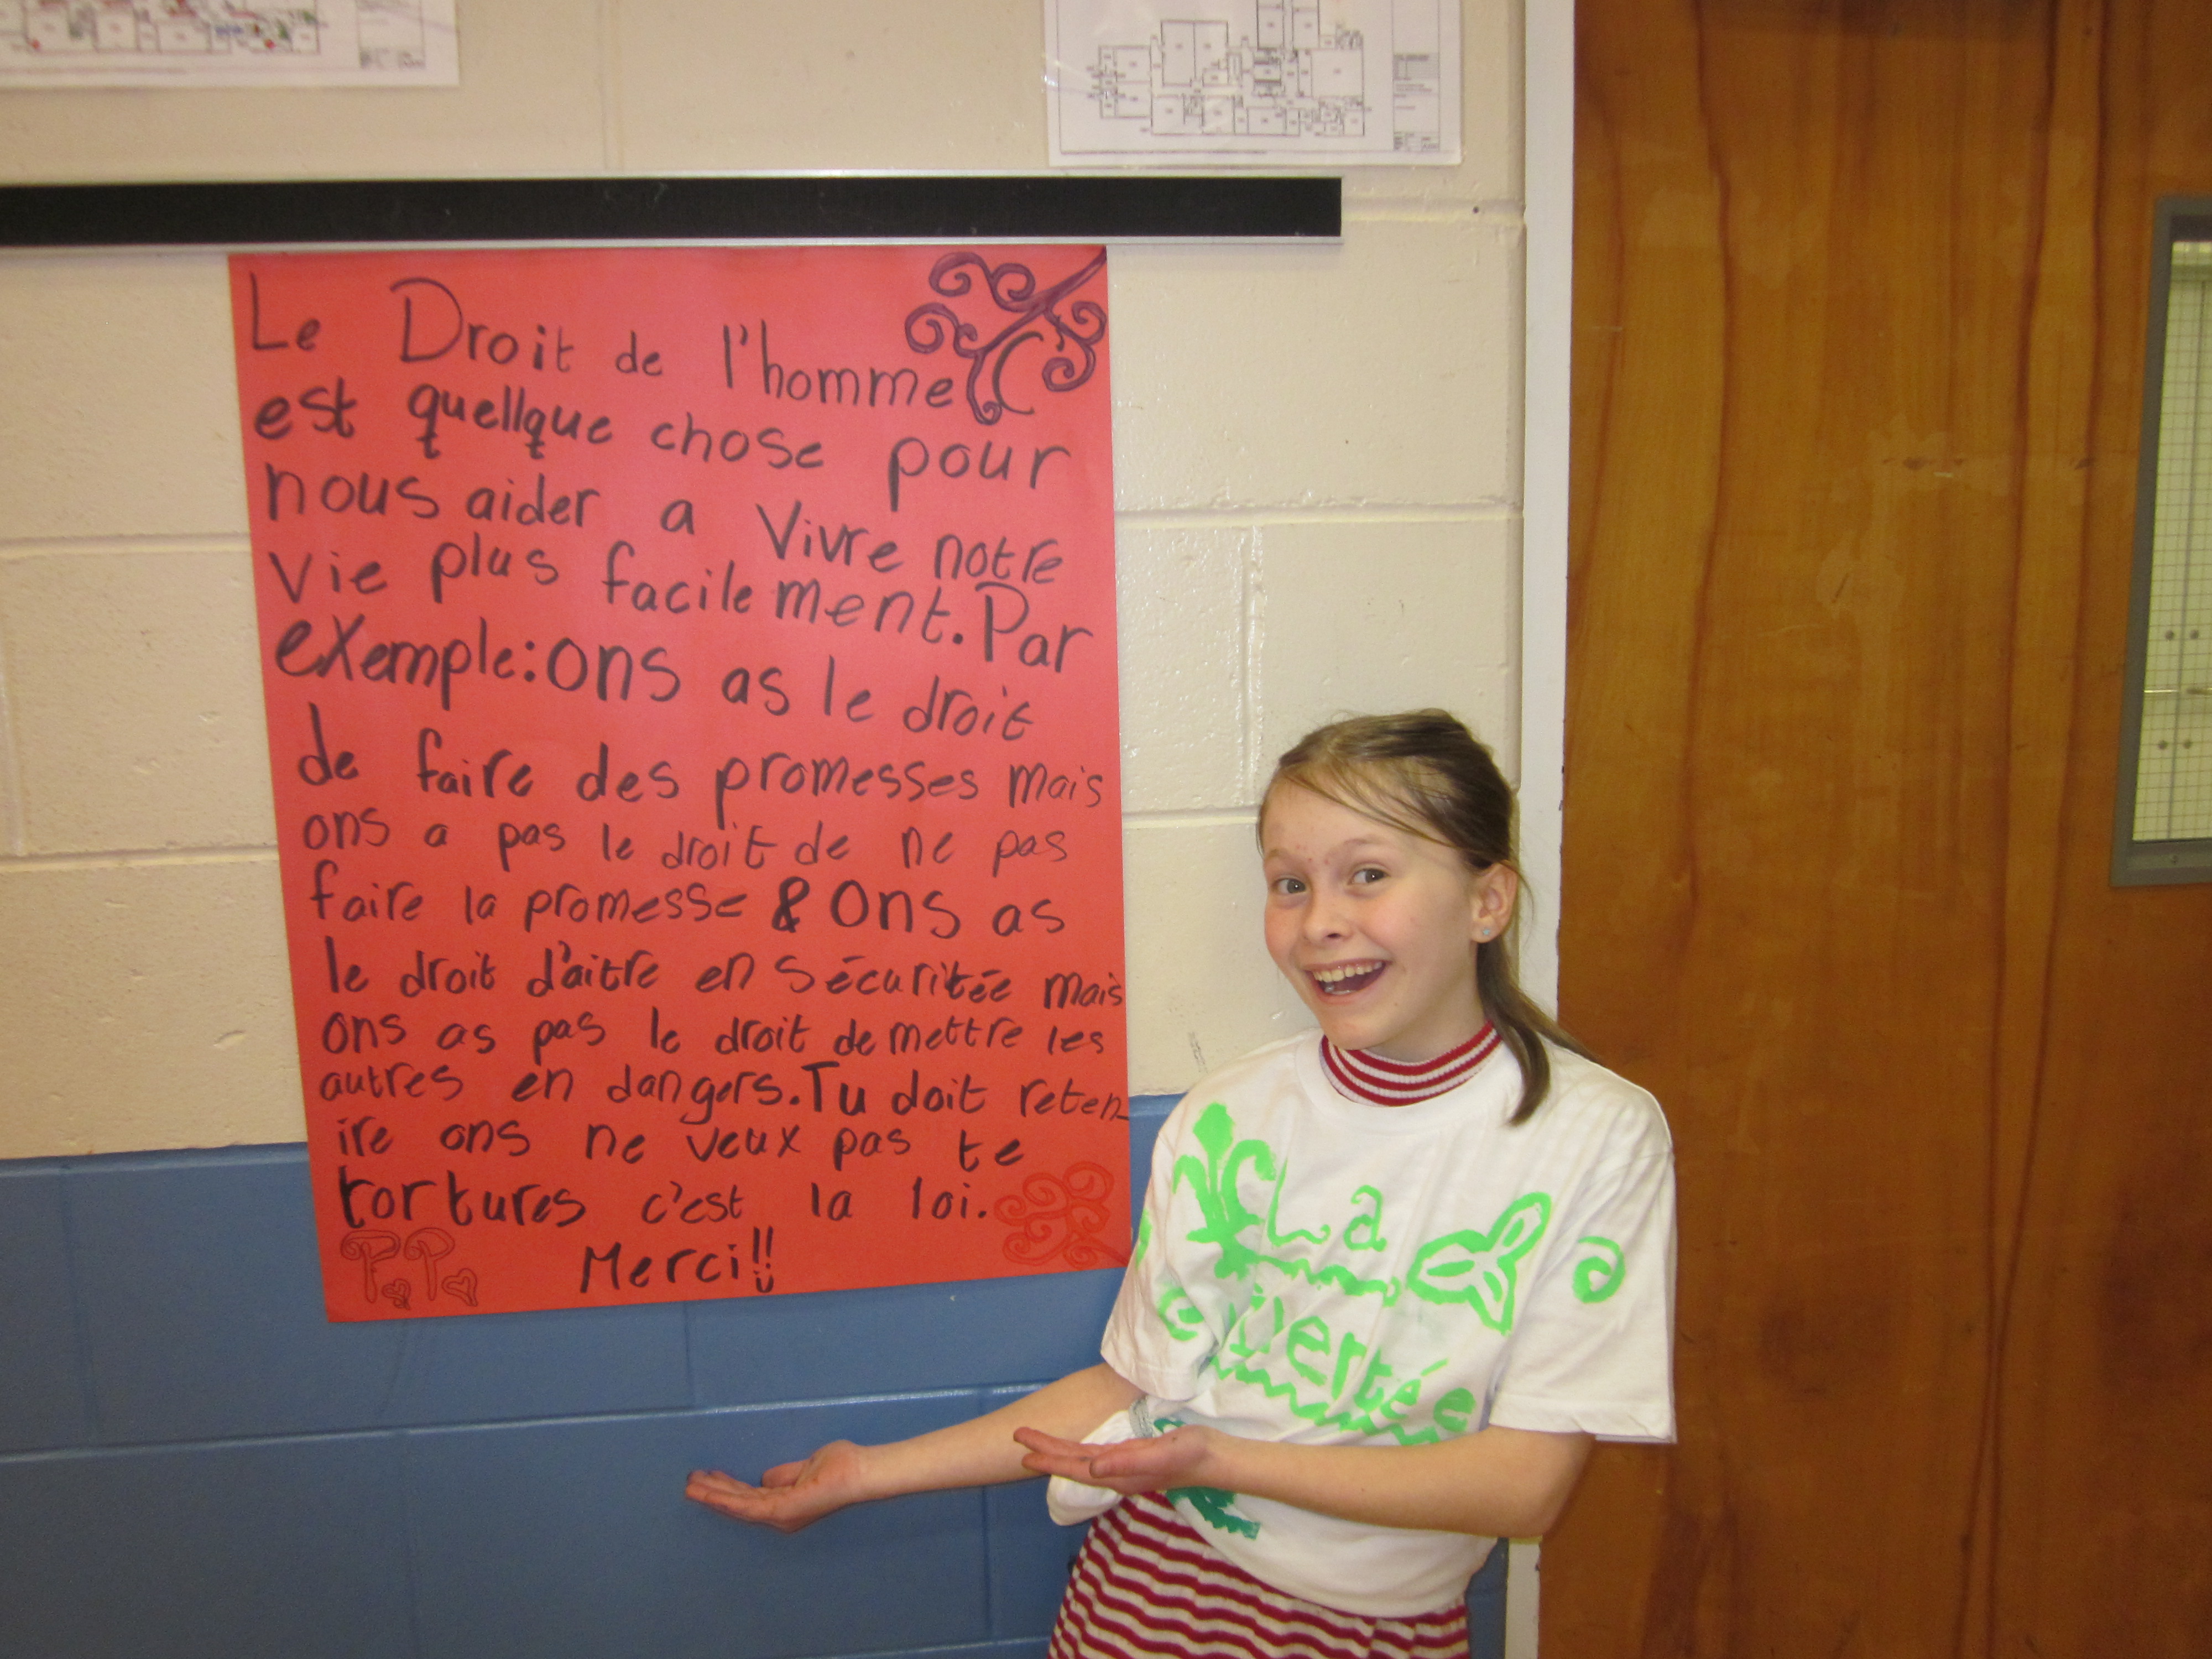 Le Droit de l'homme
est quellque chose pour
nous aider a vivre notre
vie plus facilement. Par
exemple: ons as le droit
de faire des promesses mais
ons a pas le droit de ne pas
faire la promesse & ons as
le droit d'aitre en sécuritée mais
ons as pas le droit de mettre les
autres en dangers. Tu doit reten
ire ons ne veux pas te
tortures c'est la loi.
Merci!!
P.P.
La
libertée